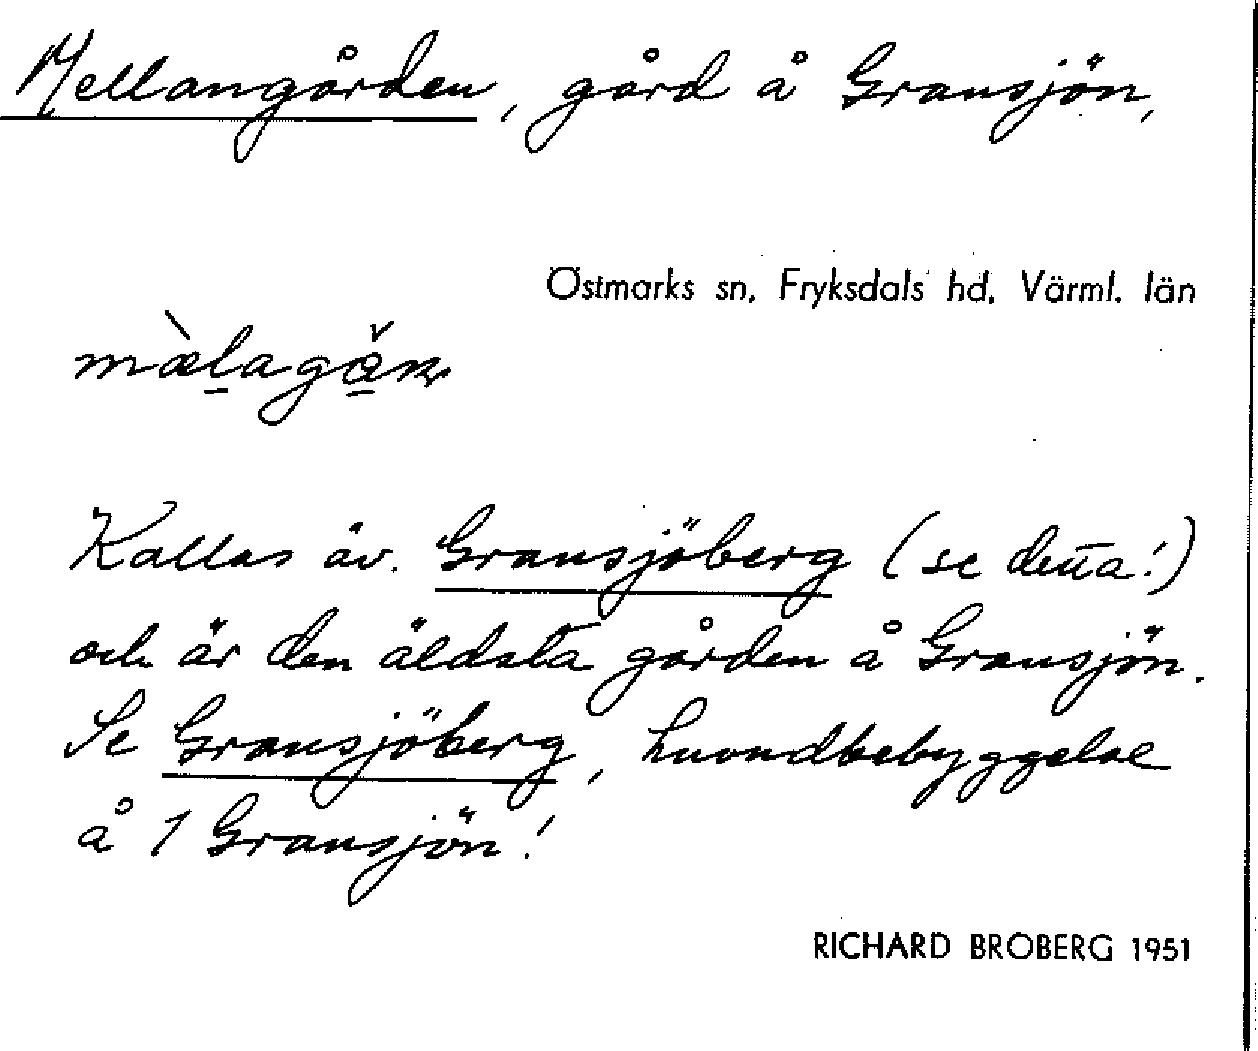 Mellangården, gård å Gransjön,
Östmarks sn, Fryksdals hd, Värml. län
Kallas äv. Gransjöberg (se denna!)
och är den äldsta gården å Gransjön.
Se Gransjöberg, huvudbebyggelse
å 1 Gransjön!
RICHARD BROBERG 1951